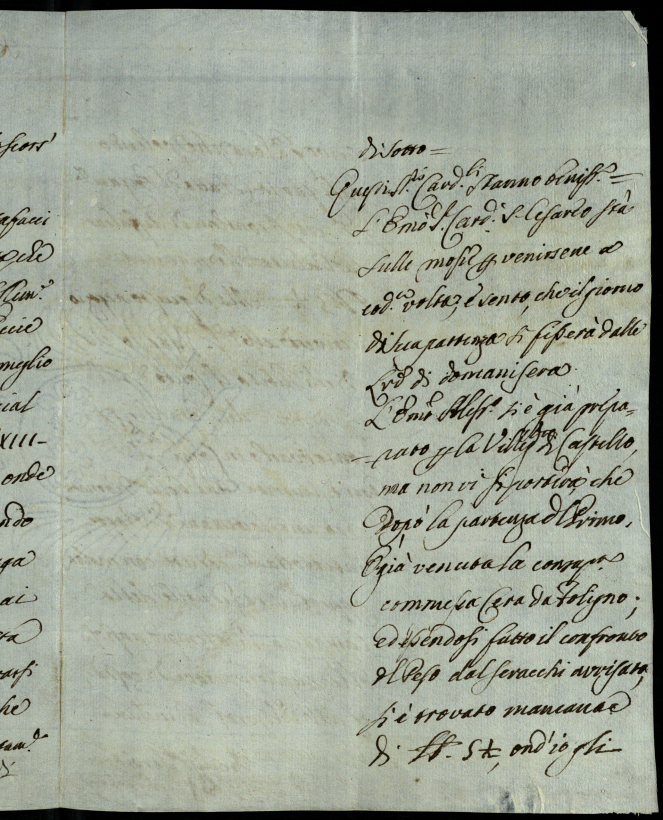 scors'
afacci
che
cie
meglio
cial
XIII-
onde
ndo
ga
ai
ta
arsi
he
di sotto =
Questi SS.ri Card.li stanno beniss.o =
L'Emo S.r Card. S. Cesareo stà
sulle mosse p venirsene a
cod.a volta, e sento, che il giorno
di sua partenza si fisserà dalle
di domani sera
L'Emo Aless.o si è già prepa-
- rato p la Villa di Castello,
ma non vi si porterà, che
dopo la partenza del Primo.
E già venuta la
commessa Cera da Foligno;
ed essendosi fatto il confronto
del Peso dal Seracchi avvisato,
si è trovato mancante
di ff. 5 ond'io gli